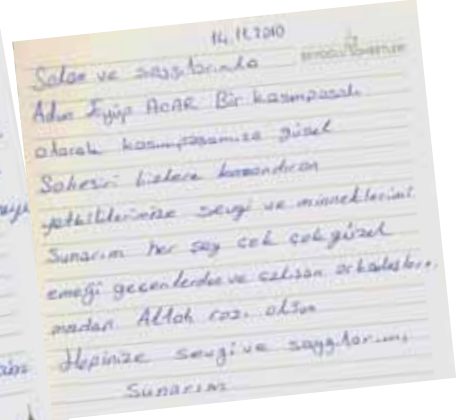 14.11.2010
Selam ve saygılarımla
Adım Eyüp ACAR Bir kasımpasalı
olarak kasımpasamıza güzel
bizlere kazandıran
yetkililerimize sevgi ve minneklerimi
Sunarım her şey çok çok güzel
emeği geçenlerden ve çalışan arkadaşları
mızdan Allah razı olsun
Hepinize sevgi ve saygılarımı
Sunarım